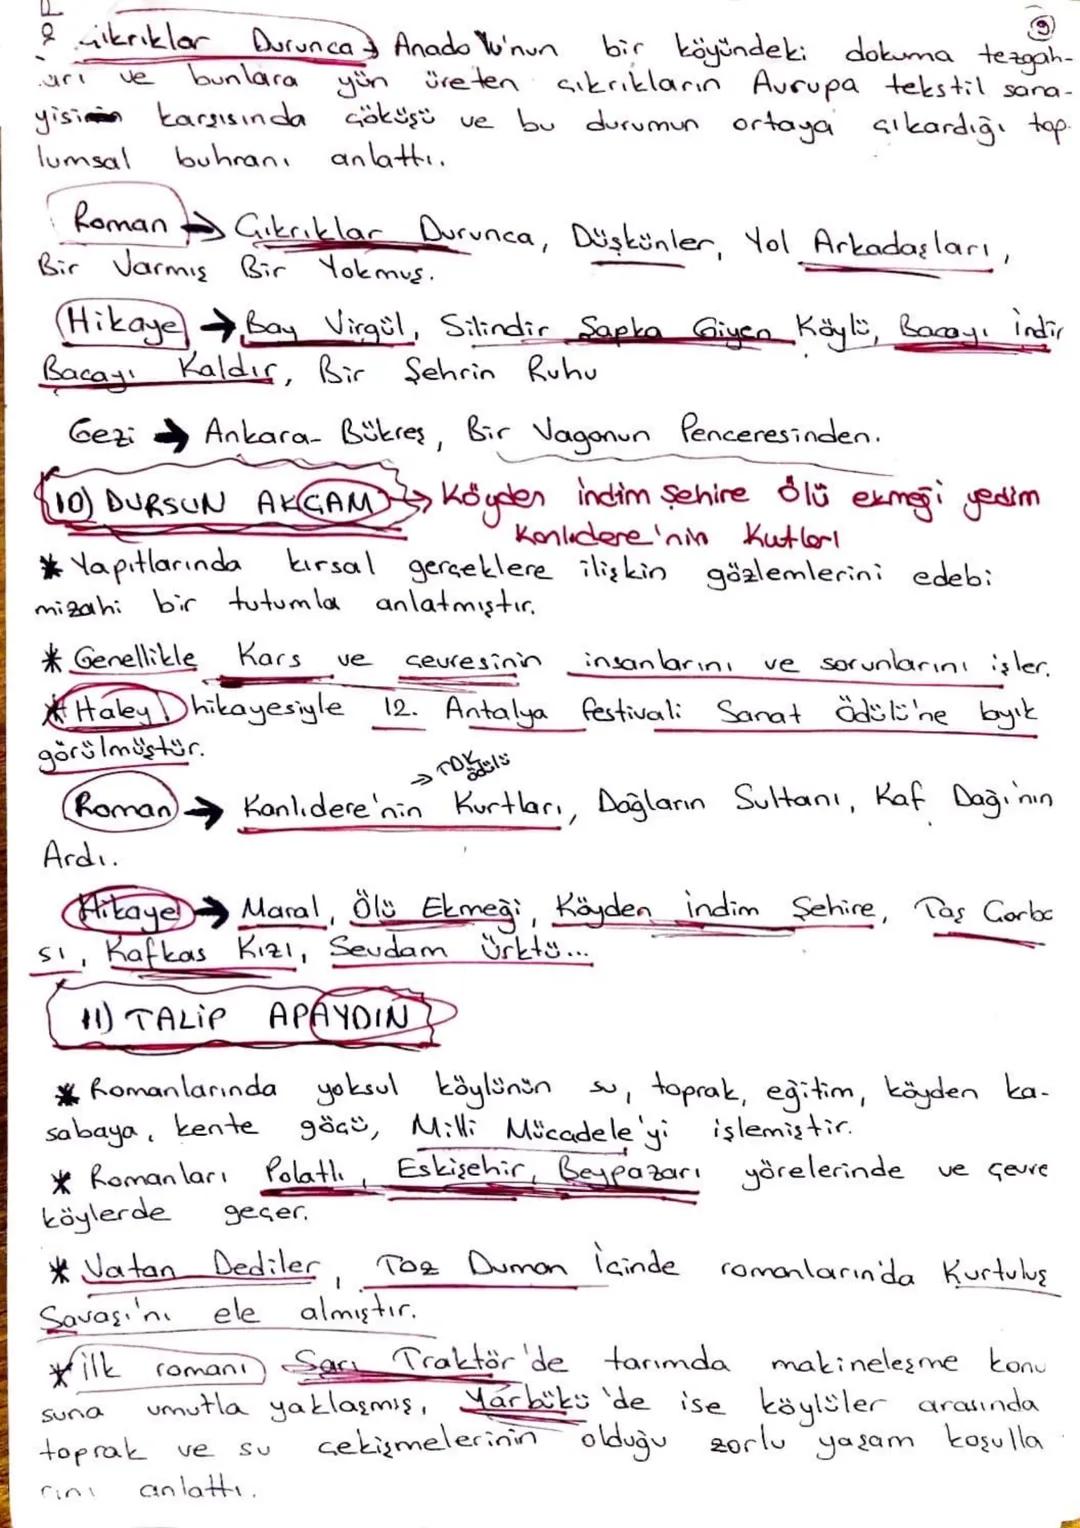 9
Çıkrıklar Durunca → Anadolu'nun bir köyündeki dokuma tezgah-
ları ve bunlara yün üreten çıkrıkların Avrupa tekstil sana-
yisinin karşısında çöküşü ve bu durumun ortaya çıkardığı top-
lumsal buhranı anlattı.
Roman → Çıkrıklar Durunca, Düşkünler, Yol Arkadaşları,
Bir Varmış Bir Yokmuş.
Hikaye → Bay Virgül, Silindir Şapka Giyen Köylü, Bacayı İndir
Bacayı Kaldır, Bir Şehrin Ruhu
Gezi → Ankara-Bükreş, Bir Vagonun Penceresinden.
10) DURSUN AKÇAM → Köyden indim şehire ölü ekmeği yedim
Kanlıdere'nin Kutları
* Yapıtlarında kırsal gerçeklere ilişkin gözlemlerini edebi
mizahi bir tutumla anlatmıştır.
* Genellikle Kars ve çevresinin insanlarını ve sorunlarını işler.
* Haley hikayesiyle 12. Antalya festivali Sanat Ödülü'ne layık
görülmüştür.
→ TDK ödülü
Roman → Kanlıdere'nin Kurtları, Dağların Sultanı, Kaf Dağı'nın
Ardı.
Hikaye → Maral, Ölü Ekmeği, Köyden indim Şehire, Taş Çorba
sı, Kafkas Kızı, Sevdam Ürktü...
11) TALİP APAYDIN
* Romanlarında yoksul köylünün su, toprak, eğitim, köyden ka-
sabaya, kente göçü, Milli Mücadele'yi işlemiştir.
* Romanları Polatlı, Eskişehir, Beypazarı yörelerinde ve çevre
köylerde geçer.
* Vatan Dediler, Toz Duman İçinde romanların'da Kurtuluş
Savaşı'nı ele almıştır.
* ilk romanı Sarı Traktör'de tarımda makineleşme konu
suna umutla yaklaşmış, Yarbükü'de ise köylüler arasında
toprak ve su çekişmelerinin olduğu zorlu yaşam koşulla
rını anlattı.